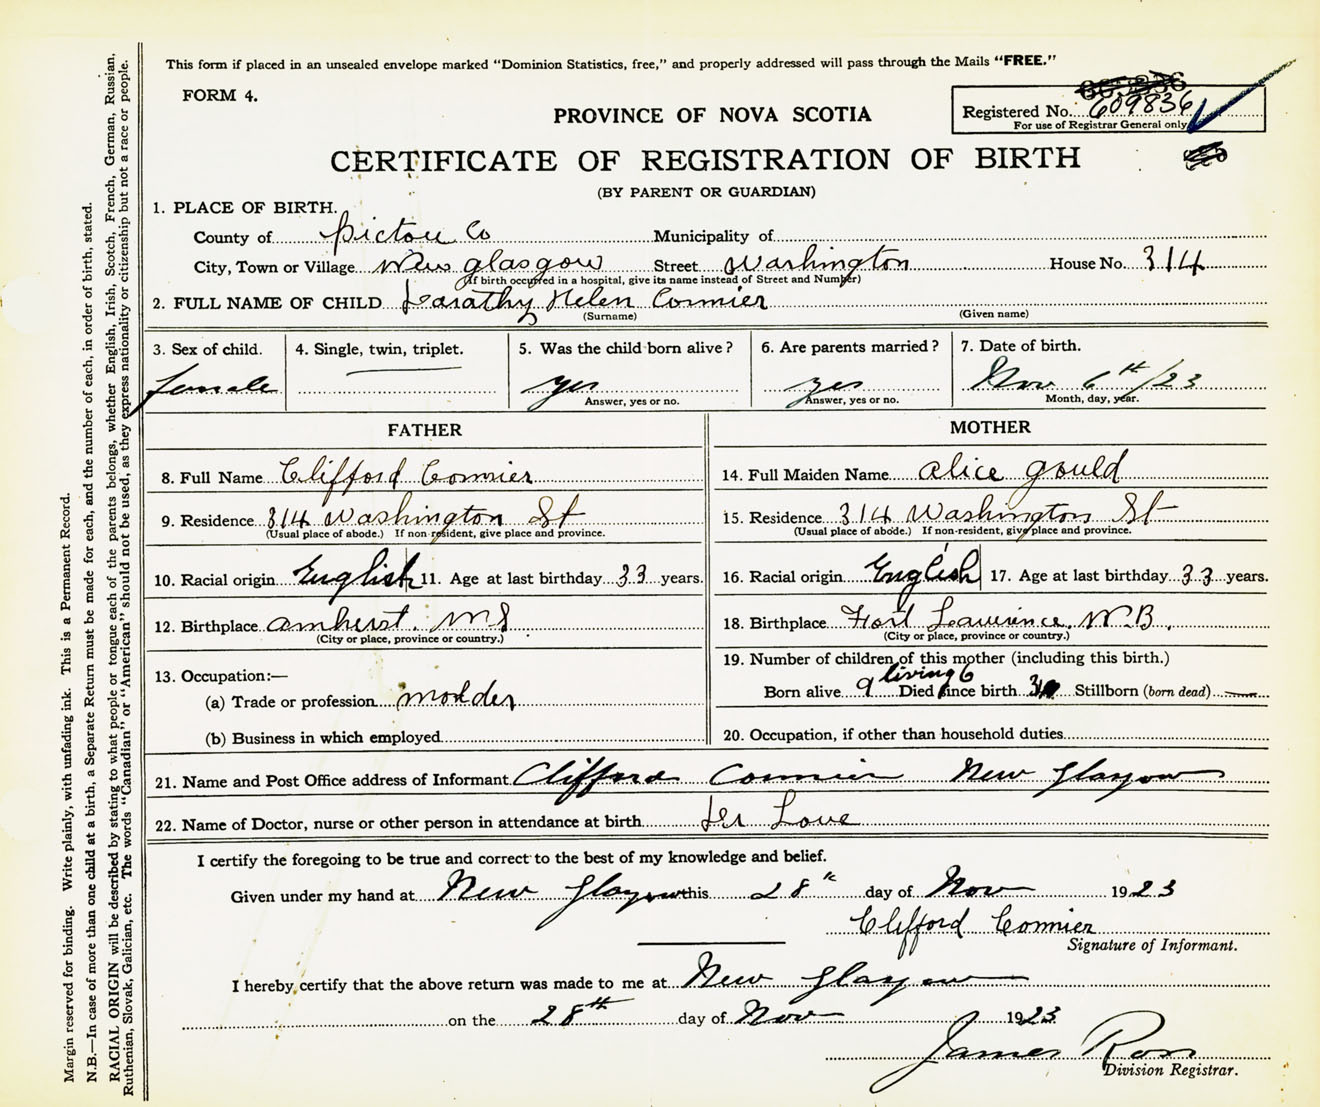 This form if placed in an unsealed envelope marked "Dominion Statistics, free," and properly addressed will pass through the Mails "FREE."
FORM 4.
PROVINCE OF NOVA SCOTIA
Registered No. 609836
For use of Registrar General only
CERTIFICATE OF REGISTRATION OF BIRTH
(BY PARENT OR GUARDIAN)
1. PLACE OF BIRTH.
County of Pictou Co Municipality of
City, Town or Village New glasgow Street Washington House No. 314
(If birth occurred in a hospital, give its name instead of Street and Number)
2. FULL NAME OF CHILD Darathy Helen Cormier
(Surname) (Given name)
3. Sex of child. 4. Single, twin, triplet. 5. Was the child born alive? 6. Are parents married? 7. Date of birth.
female yes yes Nov 6th/23
Answer, yes or no. Answer, yes or no. Month, day, year.
FATHER MOTHER
8. Full Name Clifford Cormier 14. Full Maiden Name alice gould
9. Residence 314 Washington St 15. Residence 314 Washington St
(Usual place of abode.) If non-resident, give place and province. (Usual place of abode.) If non-resident, give place and province.
10. Racial origin English 11. Age at last birthday 33 years. 16. Racial origin English 17. Age at last birthday 33 years.
12. Birthplace amherst. N.S 18. Birthplace Fort Lawrence. N.B.
(City or place, province or country.) (City or place, province or country.)
13. Occupation:— 19. Number of children of this mother (including this birth.)
living 6
(a) Trade or profession molder Born alive 9 Died since birth 3 Stillborn (born dead)
(b) Business in which employed 20. Occupation, if other than household duties
21. Name and Post Office address of Informant Clifford Cormier New Glasgow
22. Name of Doctor, nurse or other person in attendance at birth Dr Love
I certify the foregoing to be true and correct to the best of my knowledge and belief.
Given under my hand at New Glasgow this 28th day of Nov 1923
Clifford Cormier
Signature of Informant.
I hereby certify that the above return was made to me at New Glasgow
on the 28th day of Nov 1923
James Ross
Division Registrar.
Margin reserved for binding. Write plainly, with unfading ink. This is a Permanent Record.
N.B.—In case of more than one child at a birth, a Separate Return must be made for each, and the number of each, in order of birth, stated.
RACIAL ORIGIN will be described by stating to what people or tongue each of the parents belongs, whether English, Irish, Scotch, French, German, Russian,
Ruthenian, Slovak, Galician, etc. The words "Canadian" or "American" should not be used, as they express nationality or citizenship but not a race or people.